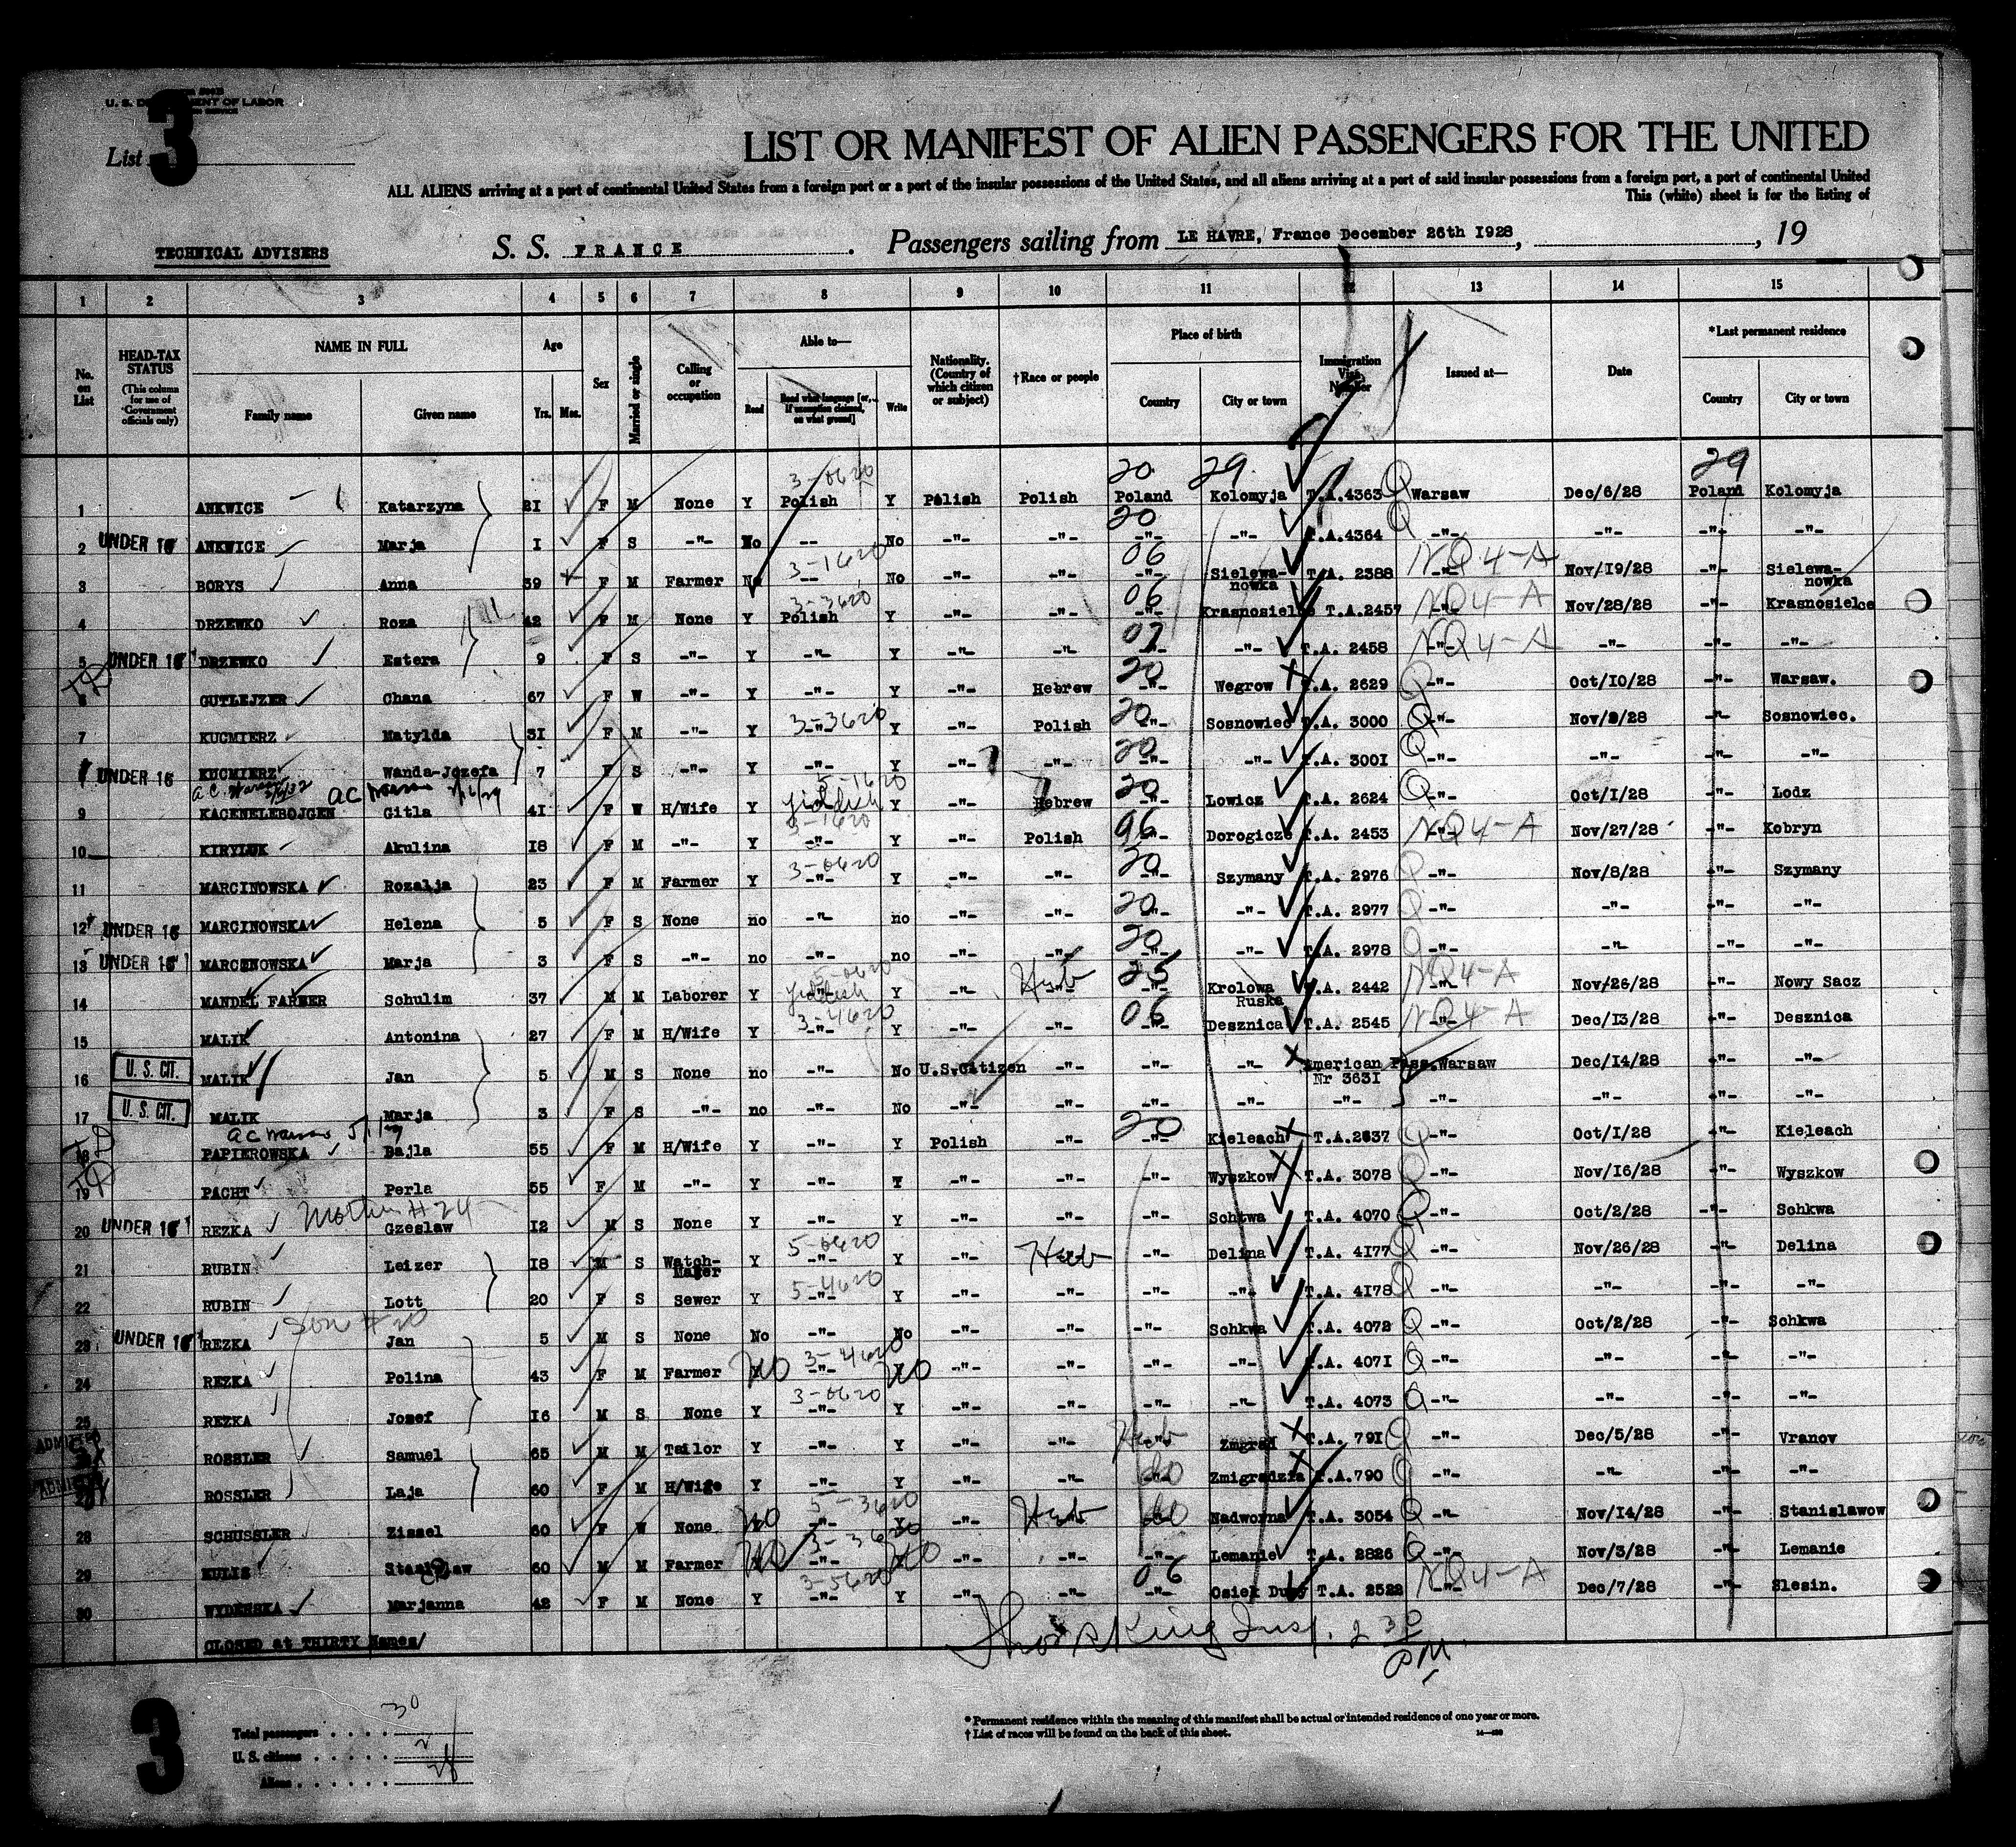 U. S. DEPARTMENT OF LABOR
List 3
LIST OR MANIFEST OF ALIEN PASSENGERS FOR THE UNITED
ALL ALIENS arriving at a port of continental United States from a foreign port or a port of the insular possessions of the United States, and all aliens arriving at a port of said insular possessions from a foreign port, a port of continental United
This (white) sheet is for the listing of
TECHNICAL ADVISERS S. S. FRANCE. Passengers sailing from LE HAVRE, France December 26th 1928, , 19
1 2 3 4 5 6 7 8 9 10 11 12 13 14 15
No. on List HEAD-TAX STATUS (This column for use of Government officials only) NAME IN FULL Family name Given name Age Yrs. Mos. Sex Married or single Calling or occupation Able to— Read Read what language [or, if exemption claimed, on what ground] Write Nationality. (Country of which citizen or subject) †Race or people Place of birth Country City or town Immigration Visa Number Issued at— Date *Last permanent residence Country City or town
3-0620 20 29 29
1 ANKWICE Katarzyna 21 F M None Y Polish Y Polish Polish Poland Kolomyja T.A.4363 Q Warsaw Dec/6/28 Poland Kolomyja
2 UNDER 16 ANKWICE Marja 1 F S -"- No -- No -"- -"- 20 -"- -"- T.A.4364 Q -"- -"- -"- -"-
3 BORYS Anna 39 F M Farmer No 3-1620 -- No -"- -"- 06 -"- Sielewa-nowka T.A. 2388 NQ4-A -"- Nov/19/28 -"- Sielewa-nowka
4 DRZEWKO Roza 42 F M None Y 3-3620 Polish Y -"- -"- 06 -"- Krasnosielce T.A.2457 NQ4-A -"- Nov/28/28 -"- Krasnosielce
5 UNDER 16 DRZEWKO Estera 9 F S -"- Y -"- Y -"- -"- 07 -"- -"- T.A. 2458 NQ4-A -"- -"- -"- -"-
6 GUTLEJZER Chana 67 F W -"- Y -"- Y -"- Hebrew 20 -"- Wegrow T.A. 2629 Q -"- Oct/10/28 -"- Warsaw.
7 KUCMIERZ Matylda 31 F M -"- Y 3-3620 -"- Y -"- Polish 20 -"- Sosnowiec T.A. 3000 Q -"- Nov/9/28 -"- Sosnowiec.
UNDER 16 KUCMIERZ Wanda-Jozefa 7 F S -"- Y -"- Y -"- -"- 20 -"- -"- T.A. 3001 Q -"- -"- -"- -"-
9 KACENELEBOJGEN Gitla 41 F W H/Wife Y 5-1620 Yiddish Y -"- Hebrew 20 -"- Lowicz T.A. 2624 Q -"- Oct/1/28 -"- Lodz
10 KIRYLUK Akulina 18 F M -"- Y 3-1620 -"- Y -"- Polish 06 -"- Dorogicze T.A. 2453 NQ4-A -"- Nov/27/28 -"- Kobryn
11 MARCINOWSKA Rozalja 23 F M Farmer Y 3-0620 -"- Y -"- -"- 20 -"- Szymany T.A. 2976 Q -"- Nov/8/28 -"- Szymany
12 UNDER 16 MARCINOWSKA Helena 5 F S None no -"- no -"- -"- 20 -"- -"- T.A. 2977 Q -"- -"- -"- -"-
13 UNDER 16 MARCENOWSKA Marja 3 F S -"- no -"- no -"- -"- 20 -"- -"- T.A. 2978 Q -"- -"- -"- -"-
14 MANDEL FARBER Schulim 37 M M Laborer Y 5-0620 Yiddish Y -"- Heb 25 -"- Krolowa Ruska T.A. 2442 NQ4-A -"- Nov/26/28 -"- Nowy Sacz
15 MALIK Antonina 27 F M H/Wife Y 3-4620 -"- Y -"- -"- 06 -"- Desznica T.A. 2545 NQ4-A -"- Dec/13/28 -"- Desznica
16 U. S. CIT. MALIK Jan 5 M S None no -"- No U.S.Citizen -"- -"- -"- American Pass.Warsaw Nr 3631 Dec/14/28 -"- -"-
17 U. S. CIT. MALIK Marja 3 F S -"- no -"- No -"- -"- -"- -"- -"- -"- -"- -"- -"-
18 PAPIEROWSKA Bajla 55 F M H/Wife Y -"- Y Polish -"- 20 -"- Kieleach T.A.2637 Q -"- Oct/1/28 -"- Kieleach
19 PACHT Perla 55 F M -"- Y -"- Y -"- -"- -"- Wyszkow T.A. 3078 Q -"- Nov/16/28 -"- Wyszkow
20 UNDER 16 REZKA Mother #24 Gzeslaw 12 M S None Y -"- Y -"- -"- -"- Schkwa T.A. 4070 Q -"- Oct/2/28 -"- Schkwa
21 RUBIN Leizer 18 M S Watch-Maker Y 5-0620 -"- Y -"- Heb -"- Delina T.A. 4177 Q -"- Nov/26/28 -"- Delina
22 RUBIN Lott 20 F S Sewer Y 5-4620 -"- Y -"- -"- -"- -"- T.A. 4178 Q -"- -"- -"- -"-
Son #20
23 UNDER 16 REZKA Jan 5 M S None No -"- No -"- -"- -"- Schkwa T.A. 4072 Q -"- Oct/2/28 -"- Schkwa
24 REZKA Polina 43 F M Farmer NO 3-4620 -"- NO -"- -"- -"- -"- T.A. 4071 Q -"- -"- -"- -"-
25 REZKA Josef 16 M S None Y 3-0620 -"- Y -"- -"- -"- -"- T.A. 4073 Q -"- -"- -"- -"-
ADMITTED ROSSLER Samuel 65 M M Tailor Y -"- Y -"- -"- Heb -"- Zmgrad T.A. 791 Q -"- Dec/5/28 -"- Vranov
ADMITTED ROSSLER Laja 60 F M H/Wife Y -"- Y -"- -"- do -"- Zmigradzia T.A.790 Q -"- -"- -"- -"-
28 SCHUSSLER Zissel 60 F W None NO 5-3620 -"- Y -"- Heb do -"- Nadworna T.A. 3054 Q -"- Nov/14/28 -"- Stanislawow
29 KULIS Stanislaw 60 M M Farmer NO 3-3620 -"- NO -"- -"- -"- Lemanie T.A. 2826 Q -"- Nov/3/28 -"- Lemanie
30 WYDERSKA Marjanna 42 F M None Y 3-5620 -"- Y -"- -"- 06 -"- Osiek Duzy T.A. 2522 NQ4-A -"- Dec/7/28 -"- Slesin.
CLOSED at THIRTY Names/
Thos King Insp. 2 30 PM.
3
Total passengers . . . . 30
U. S. citizens . . . . . 2
Aliens . . . . . . 28
* Permanent residence within the meaning of this manifest shall be actual or intended residence of one year or more.
† List of races will be found on the back of this sheet.